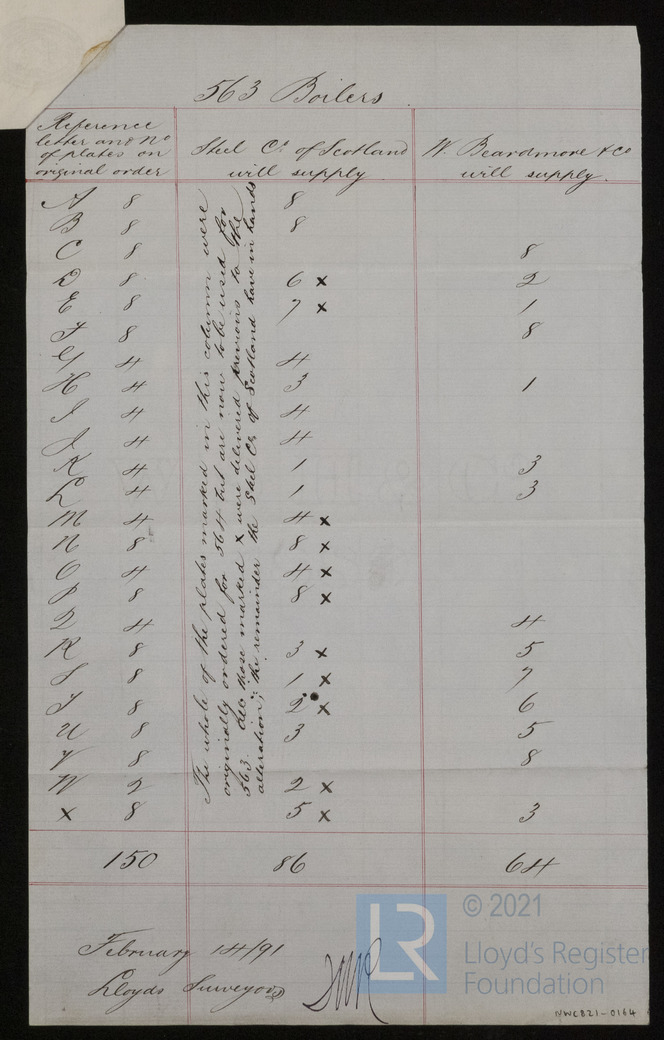 563 Boilers
Reference letter and No of plates on original order
Steel Co. of Scotland will supply
W. Beardmore & Co will supply
A 8 8
B 8 8
C 8 8
D 8 6 x 2
E 8 7 x 1
F 8 8
G 4 4
H 4 3 1
I 4 4
J 4 4
K 4 1 3
L 4 1 3
M 4 4 x
N 8 8 x
O 4 4 x
P 8 8 x
Q 4 4
R 8 3 x 5
S 8 1 x 7
T 8 2 x 6
U 8 3 5
V 8 8
W 2 2 x
X 8 5 x 3
150 86 64
The whole of the plates marked in this column were
originally ordered for 564 but are now to be used for
563. those marked x were delivered previous to the
alteration, the remainder the Steel Co. of Scotland have in hands
February 14/91
Lloyds Surveyors
LR
© 2021
Lloyd's Register
Foundation
NWCB21-0164